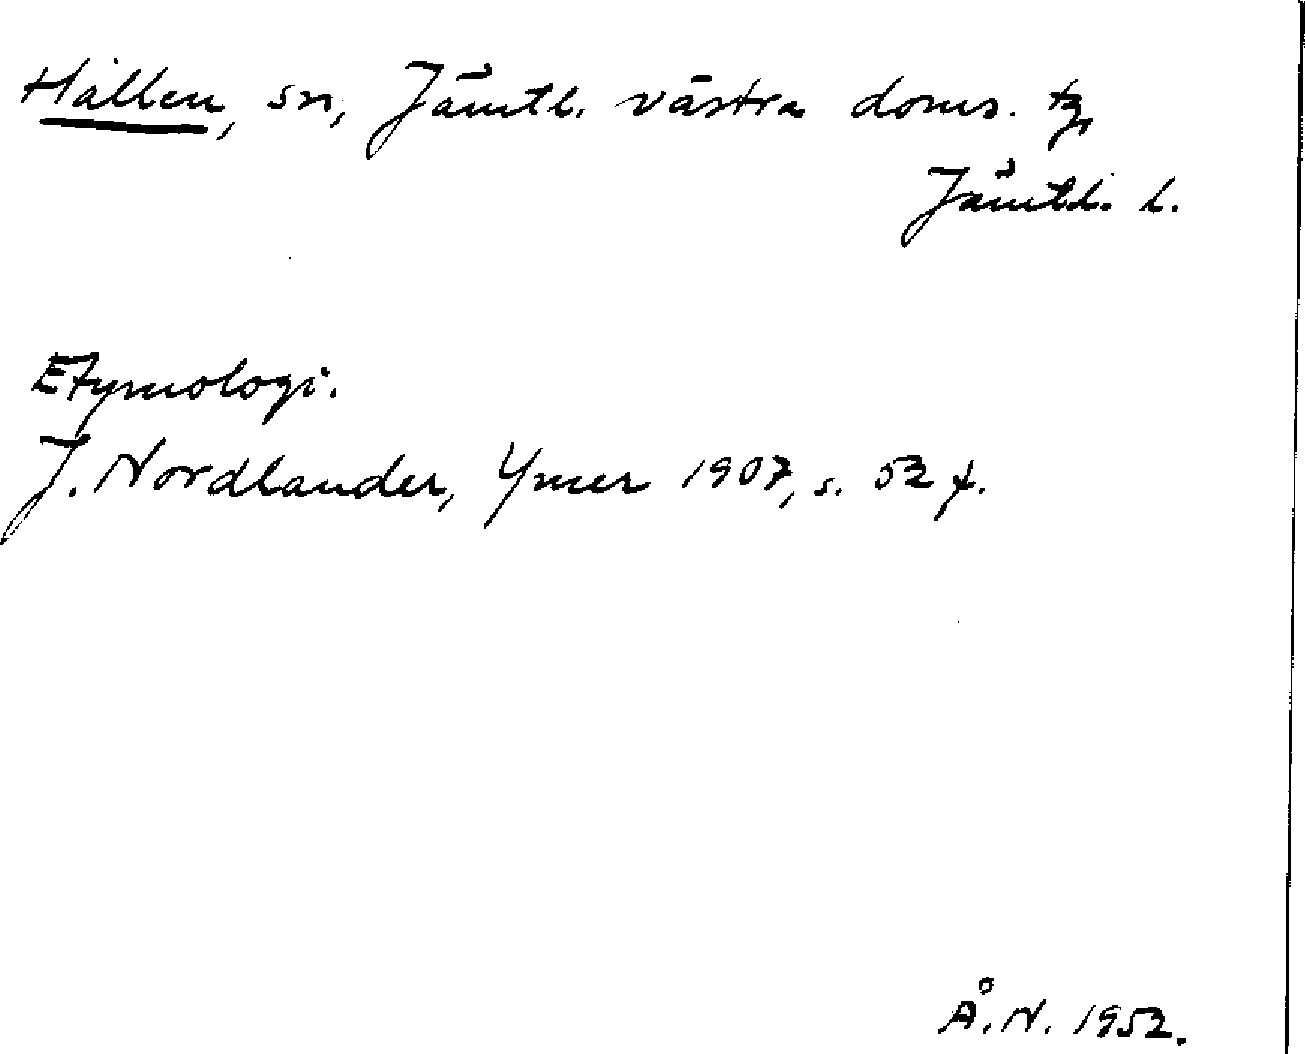 Hållen, sn, Jämtl. västra doms. tg,
Jämtl. l.
Etymologi.
J. Nordlander, Ymer 1907, s. 52 f.
Å. N. 1952.